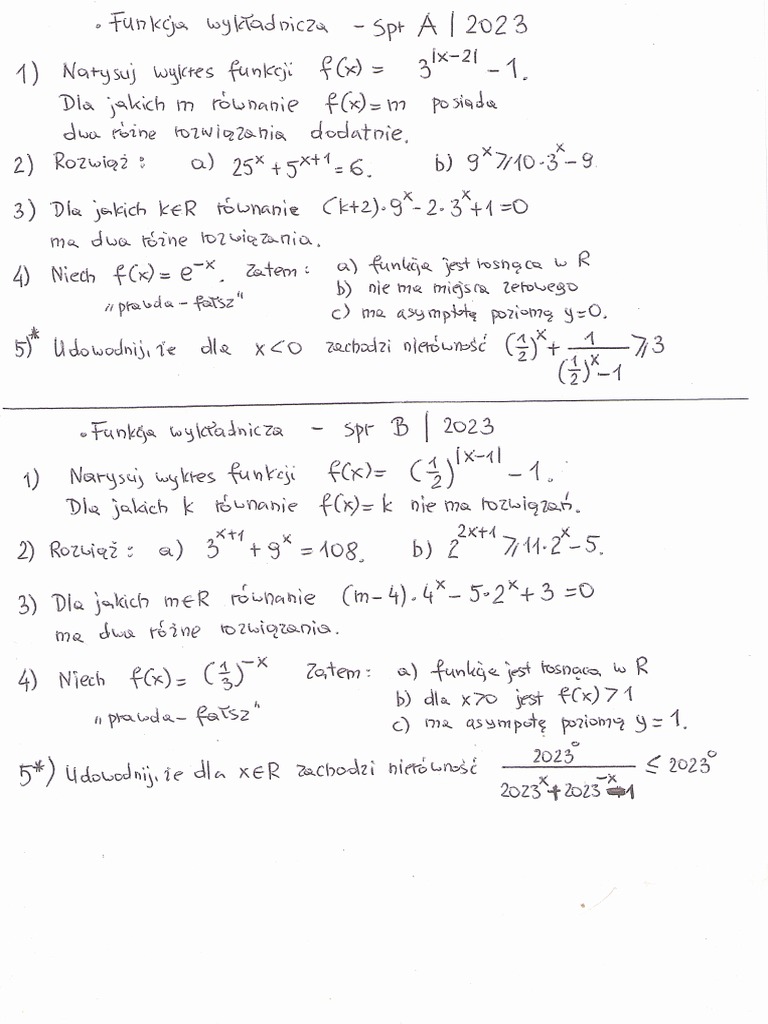 • Funkcja wykładnicza – Spr A | 2023
1) Narysuj wykres funkcji f(x) = 3^|x-2| - 1.
Dla jakich m równanie f(x)=m posiada
dwa różne rozwiązania dodatnie.
2) Rozwiąż: a) 25^x + 5^(x+1) = 6. b) 9^x ⩾ 10·3^x - 9.
3) Dla jakich k∈R równanie (k+2)·9^x - 2·3^x + 1 = 0
ma dwa różne rozwiązania.
4) Niech f(x) = e^-x. Zatem: a) funkcja jest rosnąca w R
„prawda – fałsz" b) nie ma miejsca zerowego
c) ma asymptotę poziomą y=0.
5)* Udowodnij, że dla x<0 zachodzi nierówność (1/2)^x + 1/((1/2)^x - 1) ⩾ 3
• Funkcja wykładnicza – spr B | 2023
1) Narysuj wykres funkcji f(x) = (1/2)^|x-1| - 1.
Dla jakich k równanie f(x)=k nie ma rozwiązań.
2) Rozwiąż: a) 3^(x+1) + 9^x = 108. b) 2^(2x+1) ⩾ 11·2^x - 5.
3) Dla jakich m∈R równanie (m-4)·4^x - 5·2^x + 3 = 0
ma dwa różne rozwiązania.
4) Niech f(x) = (1/3)^-x Zatem: a) funkcja jest rosnąca w R
„prawda – fałsz" b) dla x>0 jest f(x)>1
c) ma asympotę poziomą y=1.
5*) Udowodnij, że dla x∈R zachodzi nierówność 2023^0/(2023^x + 2023^-x - 1) ≤ 2023^0